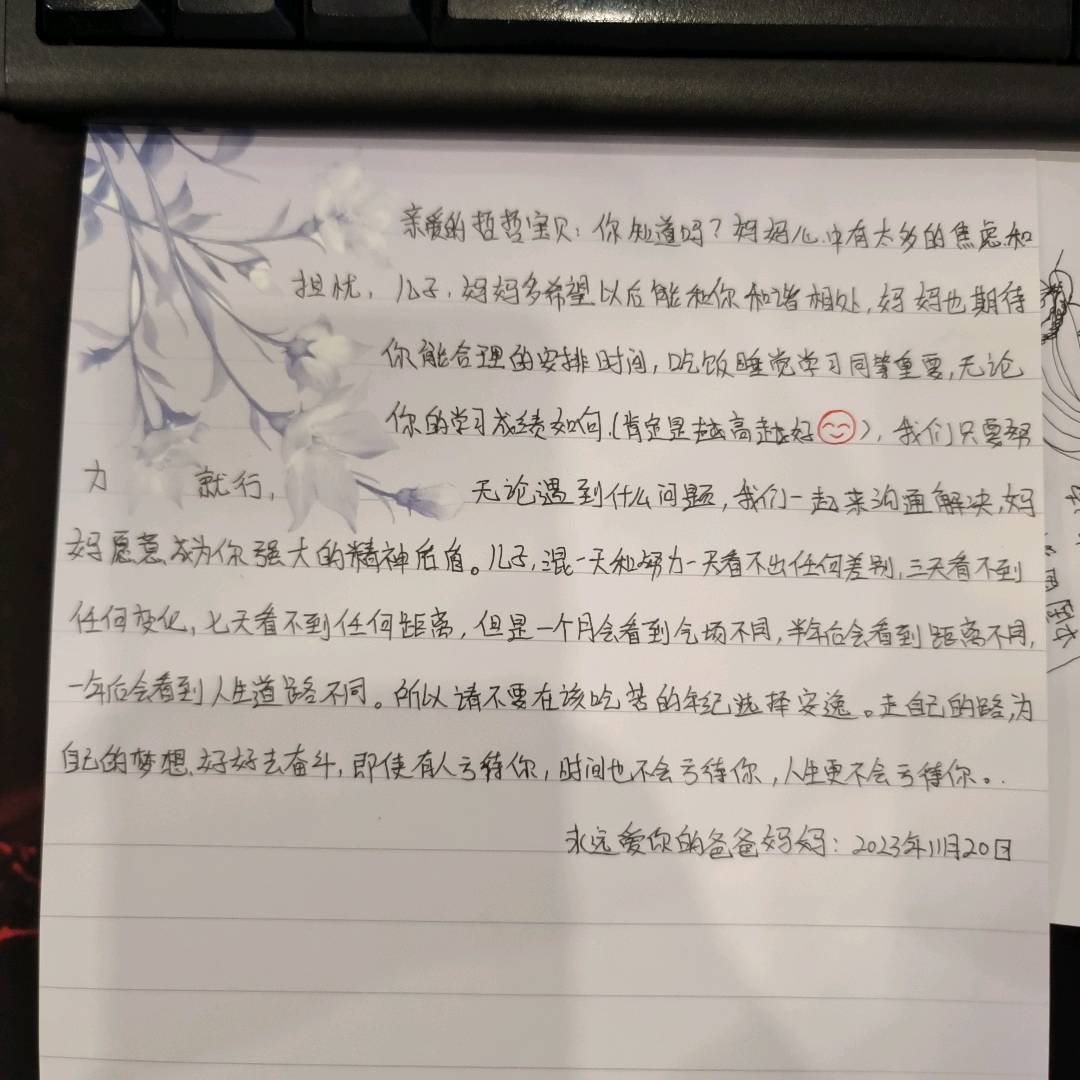 亲爱的哲哲宝贝：你知道吗？妈妈心中有太多的焦虑和
担忧，儿子，妈妈多希望以后能和你和谐相处，妈妈也期待
你能合理的安排时间，吃饭睡觉学习同等重要，无论
你的学习成绩如何（肯定是越高越好😊），我们只要努
力 就行， 无论遇到什么问题，我们一起来沟通解决，妈
妈愿意成为你强大的精神后盾。儿子，混一天和努力一天看不出任何差别，三天看不到
任何变化，七天看不到任何距离，但是一个月会看到气场不同，半年后会看到距离不同，
一年后会看到人生道路不同。所以请不要在该吃苦的年纪选择安逸。走自己的路，为
自己的梦想好好去奋斗，即使有人亏待你，时间也不会亏待你，人生更不会亏待你。
永远爱你的爸爸妈妈：2023年11月20日